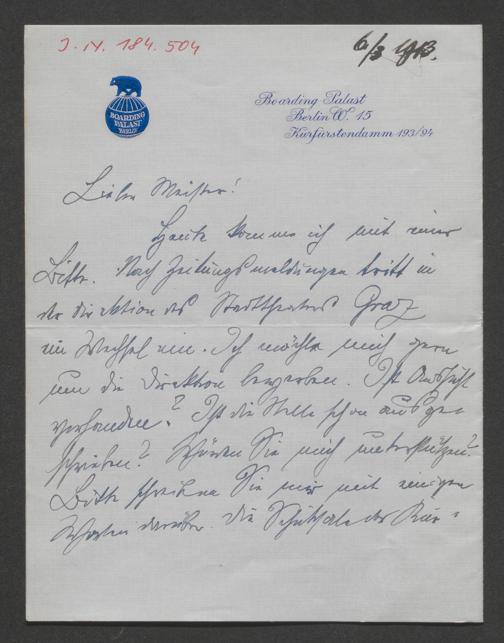 J. N. 184.504
6/3 1913.
BOARDING
PALAST
BERLIN
Boarding Palast
Berlin W. 15
Kurfürstendamm 193/94
Lieber Meister!
Heute komme ich mit einer
Bitte. Nach Zeitungsmeldungen tritt in
der Direktion des Stadttheaters Graz
ein Wechsel ein. Ich möchte mich gern
um die Direktion bewerben. Ist Aussicht
vorhanden? Ist die Stelle schon ausge-
schrieben? Würden Sie mich unterstützen?
Bitte schreiben Sie mir mit einigen
Worten darüber. Die Schicksale der Kur-